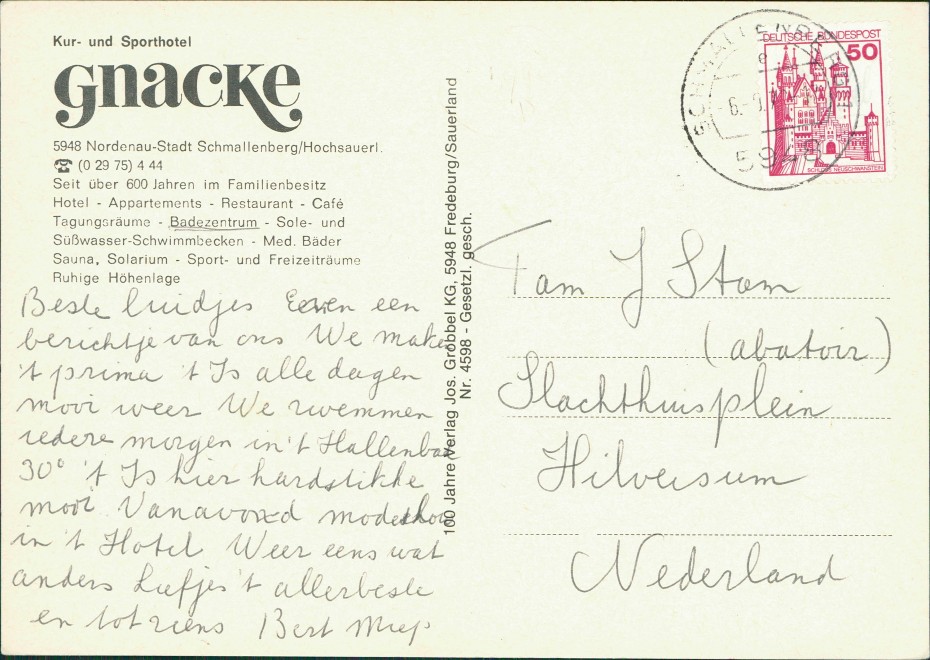 Kur- und Sporthotel
gnacke
5948 Nordenau-Stadt Schmallenberg/Hochsauerl.
☎ (0 29 75) 4 44
Seit über 600 Jahren im Familienbesitz
Hotel - Appartements - Restaurant - Café
Tagungsräume - Badezentrum - Sole- und
Süßwasser-Schwimmbecken - Med. Bäder
Sauna, Solarium - Sport- und Freizeiträume
Ruhige Höhenlage
Beste luidjes Eeven een
berichtje van ons We maken
't prima 't Is alle dagen
mooi weer We zwemmen
iedere morgen in 't Hallenbad
30° 't Is hier hardstikke
mooi Vanavond modeshow
in 't Hotel Weer eens wat
anders Liefjes 't allerbeste
en tot ziens Bert Miep
100 Jahre Verlag Jos. Grobbel KG, 5948 Fredeburg/Sauerland
Nr. 4598 - Gesetzl. gesch.
DEUTSCHE BUNDESPOST
50
SCHLOSS NEUSCHWANSTEIN
SCHMALLENBERG
e
5948
Fam J Stam
(abatoir)
Slachthuisplein
Hilversum
Nederland